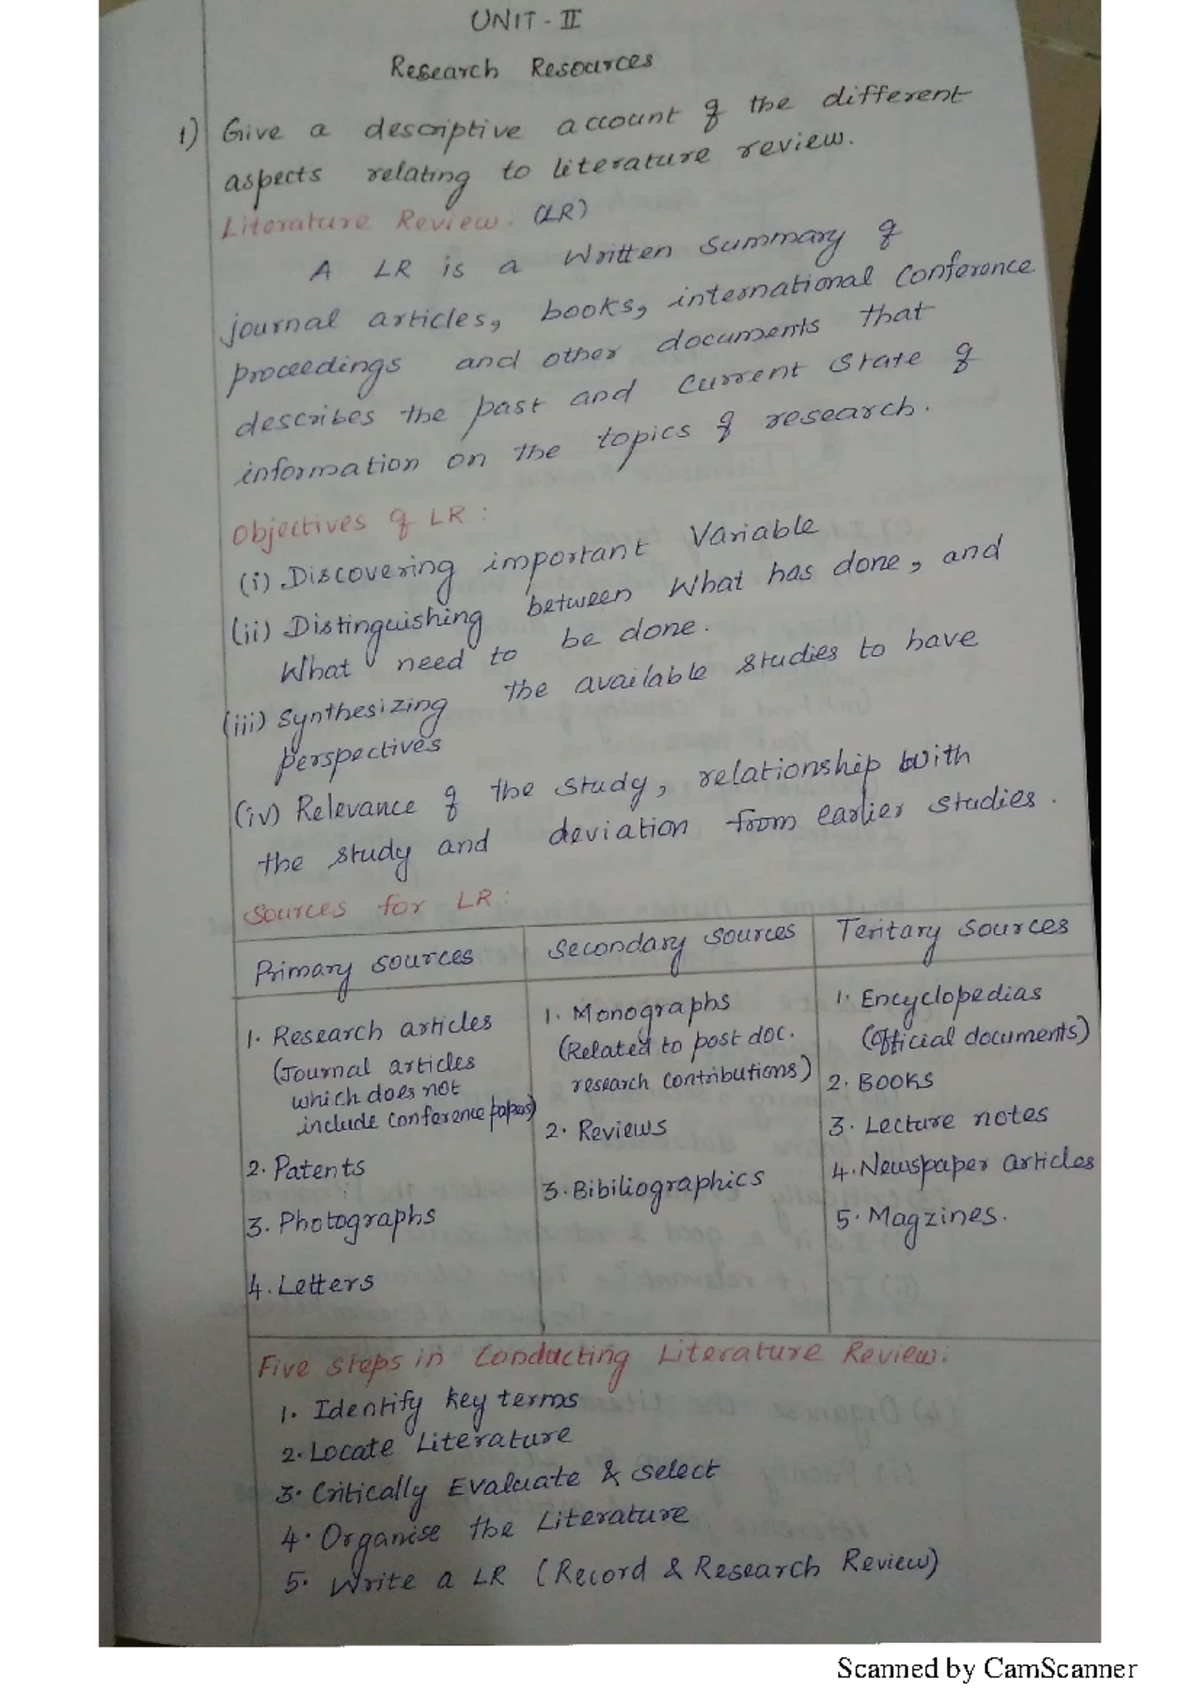 UNIT - II
Research Resources
1) Give a descriptive account of the different
aspects relating to literature review.
Literature Review. (LR)
A LR is a Written Summary of
journal articles, books, international Conference
proceedings and other documents that
describes the past and Current State of
information on the topics of research.
Objectives of LR :
(i) Discovering important Variable
(ii) Distinguishing between What has done, and
What need to be done.
(iii) Synthesizing the available studies to have
perspectives
(iv) Relevance of the study, relationship with
the study and deviation from earlier studies.
Sources for LR :
Primary sources
1. Research articles
(Journal articles
which does not
include Conference papers)
2. Patents
3. Photographs
4. Letters
Secondary sources
1. Monographs
(Related to post doc.
research contributions)
2. Reviews
3. Bibiliographics
Teritary sources
1. Encyclopedias
(Official documents)
2. Books
3. Lecture notes
4. Newspaper articles
5. Magzines.
Five steps in Conducting Literature Review:
1. Identify key terms
2. Locate Literature
3. Critically Evaluate & select
4. Organise the Literature
5. Write a LR (Record & Research Review)
Scanned by CamScanner